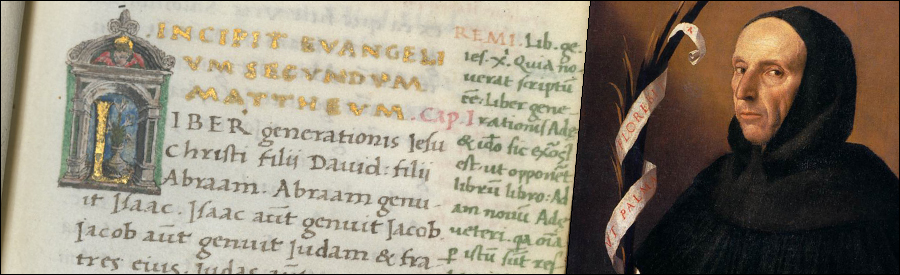 INCIPIT EVANGELI
VM SECVNDVM
MATTHEVM. CAP. I
LIBER generationis Iesu
Christi filii David: filii
Abraam. Abraam genu-
it Isaac. Isaac aūt genuit Jacob.
Jacob aūt genuit Judam & fra-
tres eius. Judas
REMI. Lib. ge.
ies. xr̄. Quia no-
uerat scriptū
ēē: Liber gene
rationis Ade
& ido sic
est: ut opponet
librū libro: Ad
am nouū Ade
ueteri. qa oīa
p istū sūt res
FLOREB
VT PALM
A